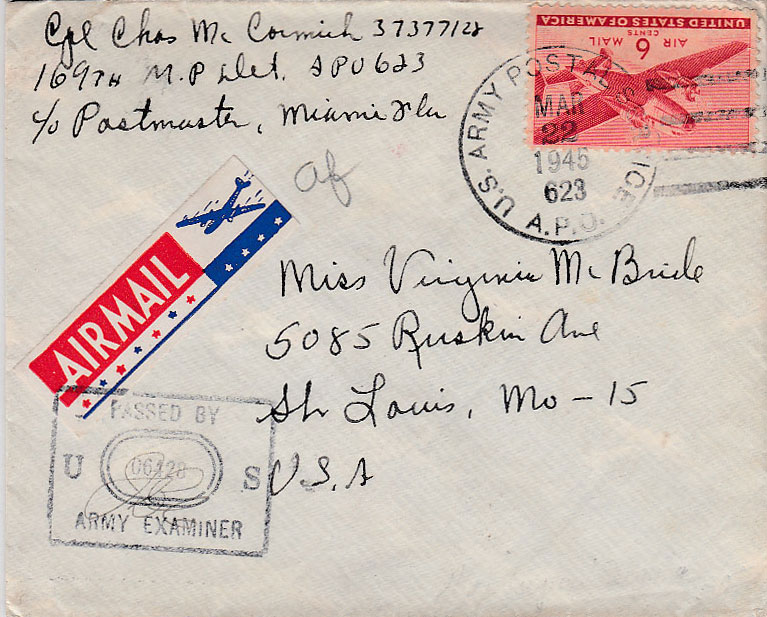 Cpl Chas Mc Cormick 37377128
169TH M.P Det. APO 623
c/o Postmaster, Miami Fla
af
UNITED STATES OF AMERICA
6 CENTS
AIR MAIL
U.S. ARMY POSTAL SERVICE
MAR
22
1945
623
A.P.O.
AIRMAIL
Miss Virginia McBride
5085 Ruskin Ave
St Louis, Mo - 15
U.S.A
PASSED BY
U 06128 S
ARMY EXAMINER